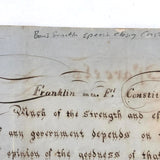 Benj Franklin speech closing Const
Franklin in the Fl. Constit
Much of the strength and ef
any government depends on
opinion of the goodness of tha